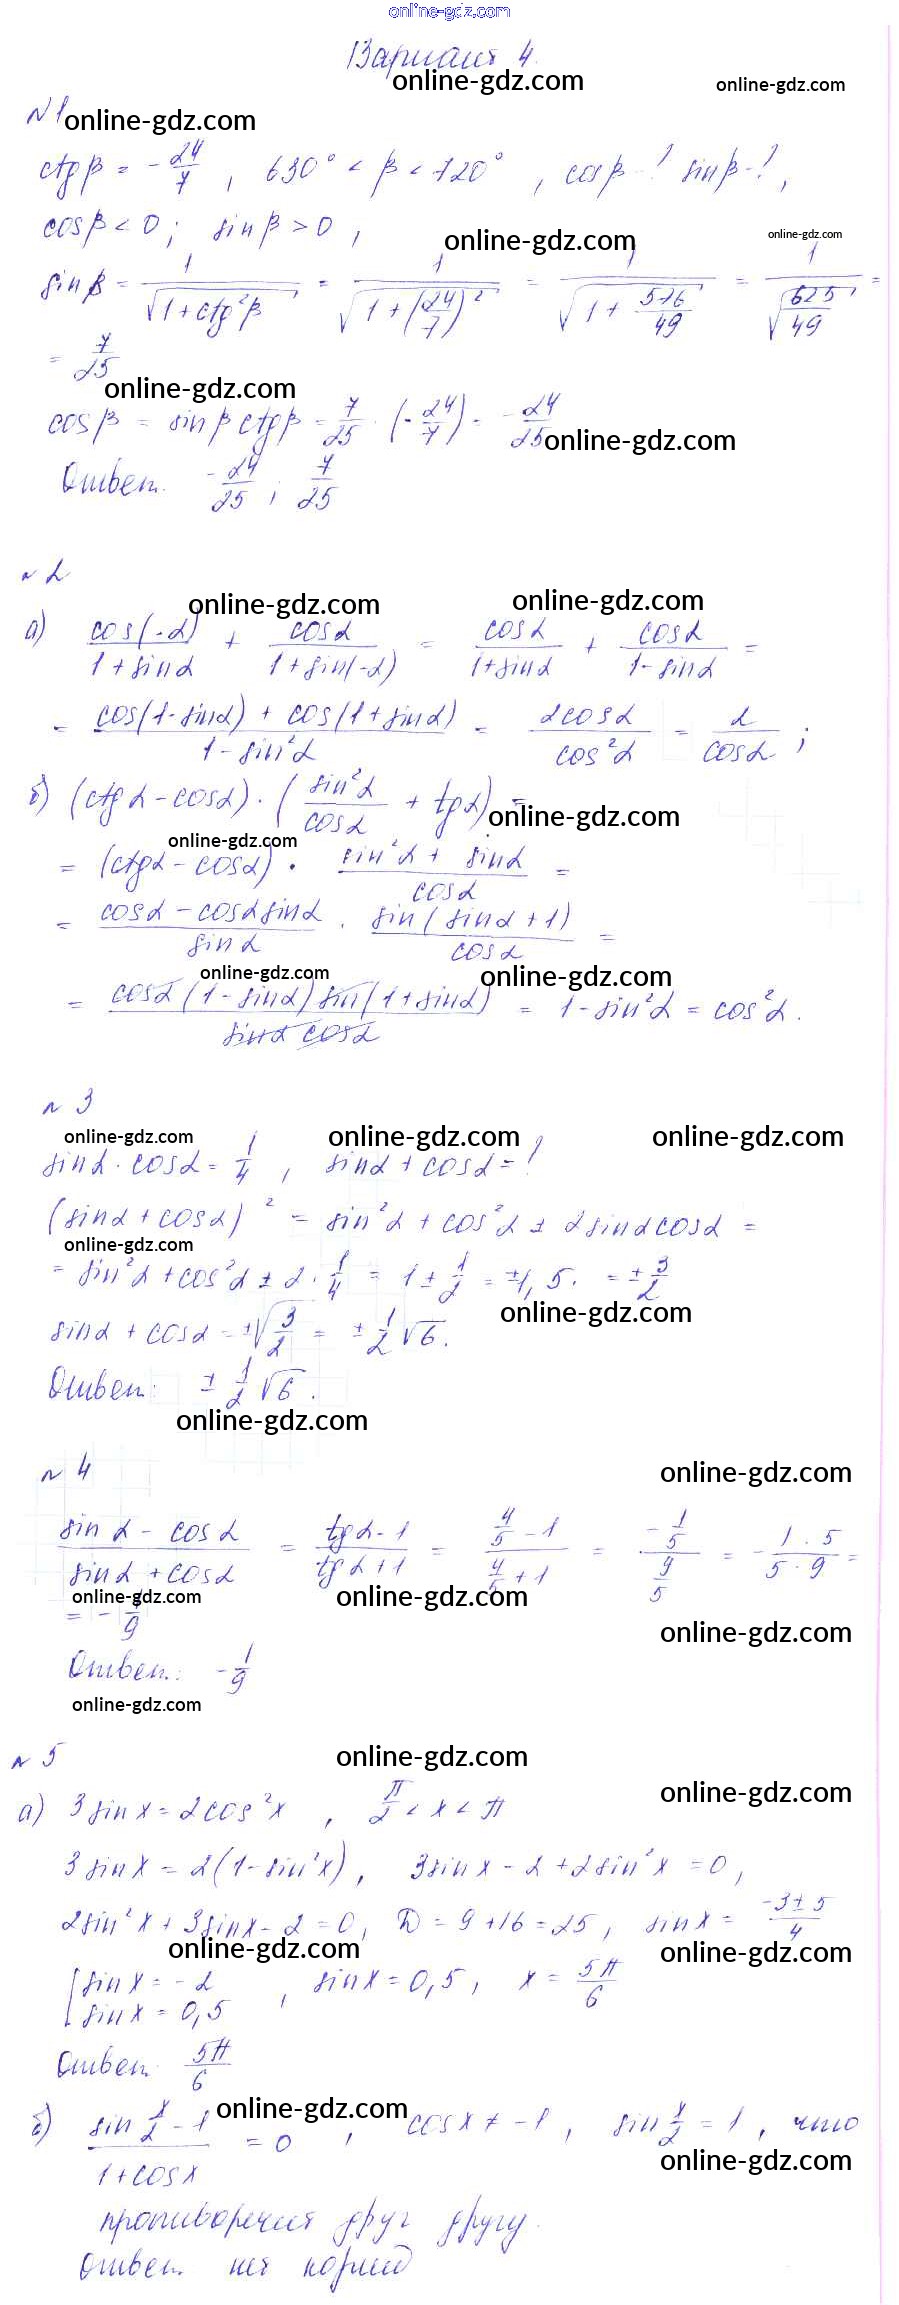 online-gdz.com
Вариант 4.
online-gdz.com online-gdz.com
№1 online-gdz.com
ctgβ = -24/7, 630° < β < 720°, cosβ-? sinβ-?,
cosβ < 0; sinβ > 0,
online-gdz.com online-gdz.com
sinβ = 1/√(1+ctg²β) = 1/√(1+(24/7)²) = 1/√(1+576/49) = 1/√(625/49) =
= 7/25
online-gdz.com
cosβ = sinβ ctgβ = 7/25 · (-24/7) = -24/25
online-gdz.com
Ответ. -24/25; 7/25
№2
online-gdz.com online-gdz.com
а) cos(-α)/(1+sinα) + cosα/(1+sin(-α)) = cosα/(1+sinα) + cosα/(1-sinα) =
= (cos(1-sinα) + cos(1+sinα))/(1-sin²α) = 2cosα/cos²α = 2/cosα;
б) (ctgα-cosα)·(sin²α/cosα + tgα) =
online-gdz.com
online-gdz.com
= (ctgα-cosα) · (sin²α + sinα)/cosα =
= (cosα-cosαsinα)/sinα · sin(sinα+1)/cosα =
online-gdz.com online-gdz.com
= cosα(1-sinα)sin(1+sinα)/(sinα cosα) = 1-sin²α = cos²α.
№3
online-gdz.com online-gdz.com online-gdz.com
sinα·cosα = 1/4, sinα+cosα = ?
(sinα+cosα)² = sin²α + cos²α ± 2sinαcosα =
online-gdz.com
= sin²α + cos²α ± 2·1/4 = 1 ± 1/2 = ±1,5. = ±3/2
online-gdz.com
sinα + cosα = ±√(3/2) = ±1/2 √6.
Ответ: ±1/2 √6.
online-gdz.com
№4
online-gdz.com
(sinα - cosα)/(sinα + cosα) = (tgα-1)/(tgα+1) = (4/5-1)/(4/5+1) = (-1/5)/(9/5) = -(1·5)/(5·9) =
online-gdz.com online-gdz.com
= -1/9
online-gdz.com
Ответ: -1/9
online-gdz.com
№5
online-gdz.com
online-gdz.com
а) 3sinx = 2cos²x, π/2 < x < π
3sinx = 2(1-sin²x), 3sinx - 2 + 2sin²x = 0,
2sin²x + 3sinx - 2 = 0, D = 9+16 = 25, sinx = (-3±5)/4
online-gdz.com online-gdz.com
[sinx = -2
sinx = 0,5, sinx = 0,5, x = 5π/6
Ответ. 5π/6
online-gdz.com
б) (sin x/2 - 1)/(1+cosx) = 0, cosx ≠ -1, sin x/2 = 1, что
online-gdz.com
противоречит друг другу.
Ответ. нет корней